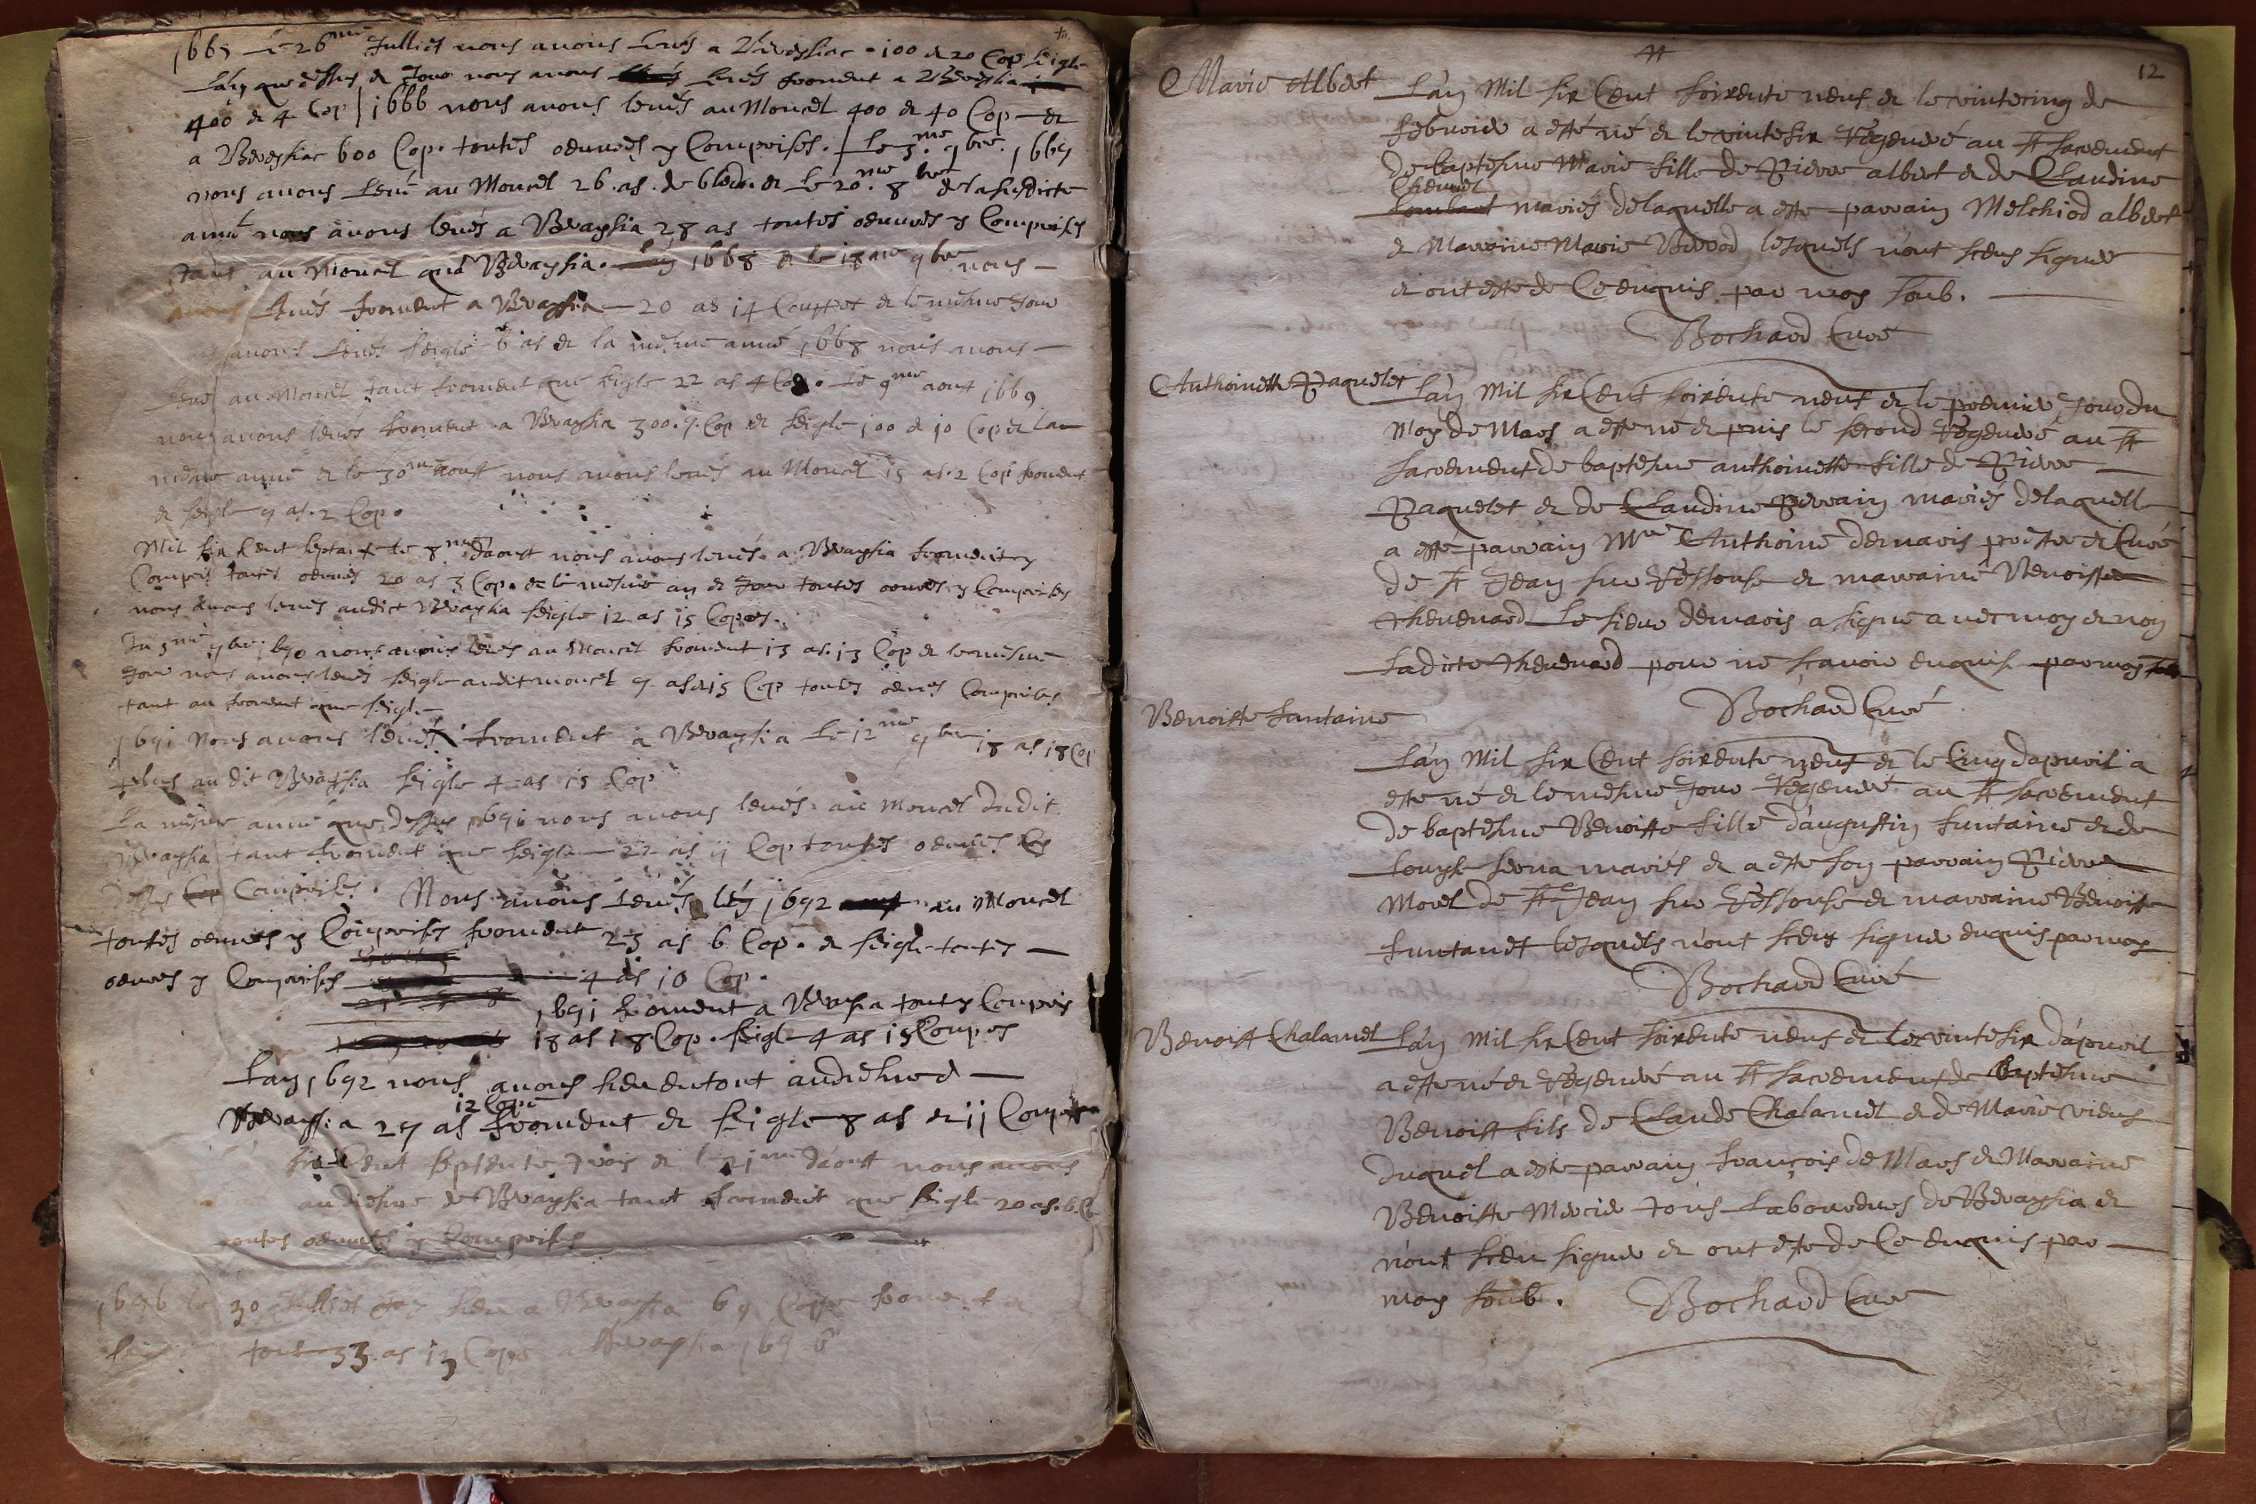 1665 Le 26me Julliet nous avons levés a Bereysiac 100 et 20 Cop seigle
Lan que dessus et Jour nous avons levés froment a
400 et 4 Cop 1666 nous avons levés au Moncel 400 et 40 Cop et
a Bereysiac 600 Cop. toutes oeuvres y Comprises. Le 3me 9bre 1667
nous avons Levé au Moncel 26 as de bled et Le 20me 8bre de la susdicte
année nous avons levés a Breaysia 28 as toutes oeuvres y Comprises
tant au Moncel qua Breaysia. 1668 et le 18me 9bre nous
avons levés froment a Breaysia 20 as 14 Couppes et le mesme Jour
avons levés seigle 6 as et la mesme année 1668 nous avons
levé au Moncel tant froment que seigle 22 as 4 Cop. Le 9me aout 1669
nous avons levés froment a Breaysia 300. 7. Cop et seigle 100 et 10 Cop et la
mesme année et le 30me aoust nous avons levés au Moncel 15 as. 2 Cop froment
et seigle 9 as. 2 Cop.
Mil six Cent septante le 8me daoust nous avons levés a Breaysia froment y
Compris toutes oeuvres 20 as 3 Cop. et le mesme an et Jour toutes oeuvres y Comprises
nous avons levés audict Breaysia seigle 12 as 15 Copes.
Du 5me 9bre 1670 nous avons levés au Moncel froment 13 as. 13 Cop et le mesme
Jour nous avons levés seigle audit moncel 9 as et 15 Cop toutes oeuvres Comprises
tant au froment que seigle
1671 Nous avons levés froment a Breaysia Le 12me 9bre 18 as 18 Cop
plus au dit Breaysia seigle 4 as 15 Cop
La mesme année que dessus 1671 nous avons levés au Moncel dudit
Breaysia tant froment que seigle 22 as 11 Cop toutes oeuvres
dessus Comprises. Nous avons Levés lan 1672 au Moncel
toutes oeuvres y Comprises froment 23 as 6 Cop. et seigle toutes
oeuvres y Comprises 4 as 10 Cop.
1671 froment a Breaysia tout y Compris
18 as 18 Cop. seigle 4 as 15 Coupes
Lan 1672 nous avons heu en tout au diesme de
12 Cope
Breaysia 27 as froment et seigle 8 as et 11 Coupes
six Cent septente trois et le 21me daoust nous avons
au diesme de Breaysia tant froment que seigle 20 as. 6. Co
toutes oeuvres y Comprises
1676 le 30 Julliet Jay heu a Breaysia 69 Coppe froment
tout 33 as 13 Cope a Breaysia 1676
St
12
Marie Albert
Lan Mil six Cent soixente neuf et le vintecinq de
febvrier a esté né et le vintesix Regenéré au St sacrement
de baptesme Marie fille de Pierre albert et de Claudine
mariés de laquelle a esté parrain Melchiod albert
et Marraine Marie Virod lesquels n'ont sceus signer
et ont esté de Ce enquis par moy soub.
Bochard Curé
Anthoinette Paquelet
Lan Mil six Cent soixente neuf et le premier Jour du
moy de Mars a esté né et puis le second Regenéré au St
sacrement de baptesme anthoinette fille de Pierre
Paquelet et de Claudine Perrain mariés de laquelle
a esté parrain Mre Anthoine demaris prestre et Curé
de St Jean sur Ressouse et marraine Benoiste
thevenard Le sieur demaris a signé avec moy et non
Ladicte thevenard pour ne scavoir enquise par moy soub
Bochard Curé
Benoiste funtaine
Lan Mil six Cent soixente neuf et le Cinq dapvril a
esté né et le mesme Jour Regenéré au St sacrement
de baptesme Benoiste fille d'augustin funtaine et de
Louyse serva mariés et a esté son parrain Pierre
Morel de St Jean sur Ressouse et marraine Benoiste
funtanet lesquels n'ont sceus signer enquis par moy
Bochard Curé
Benoist Chalamel
Lan Mil six Cent soixente neuf et le vintesix dapvril
a esté né et Regenéré au St sacrement de Baptesme
Benoist fils de Claude Chalamel et de Marie vieus
duquel a esté parrain françois de Mars et Marraine
Benoiste Mercier tous Laboureurs de Breaysia et
n'ont sceu signer et ont esté de Ce enquis par
moy soub. Bochard Curé